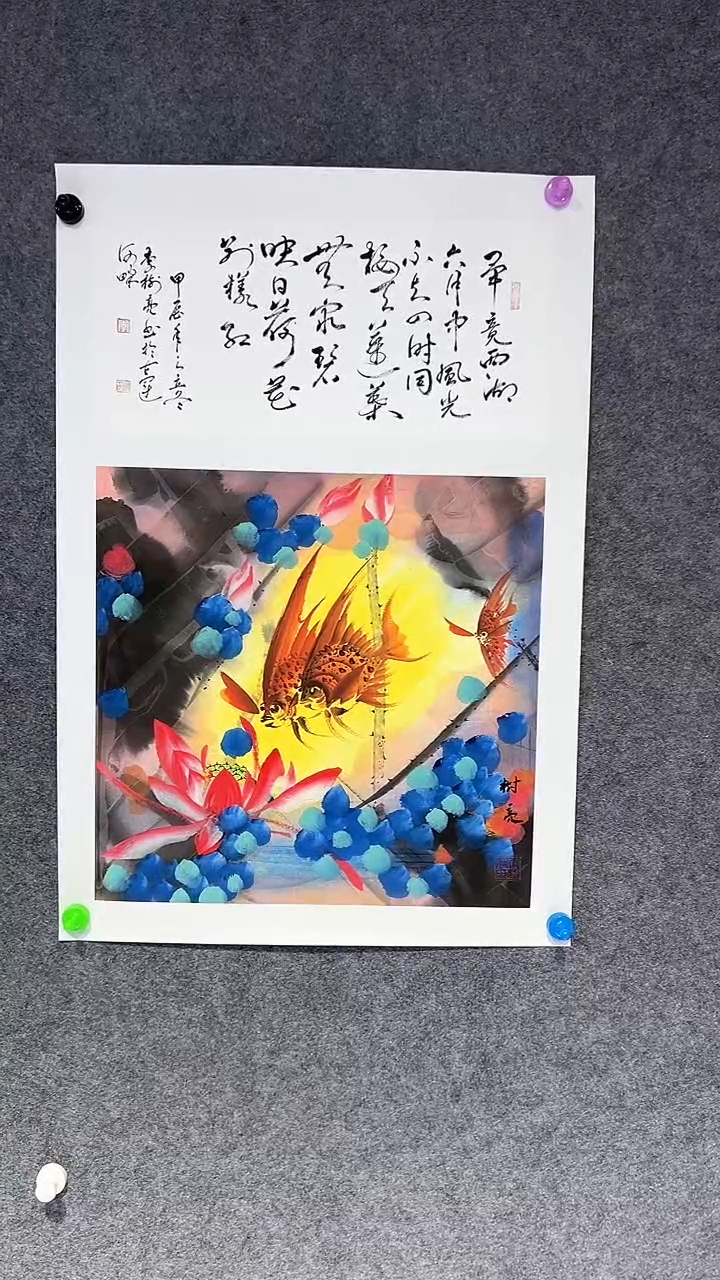 畢竟西湖
六月中風光
不与四时同
接天蓮葉
無窮碧
映日荷花
别樣红
甲辰年之立冬
李樹亮书於古運
河畔
树亮